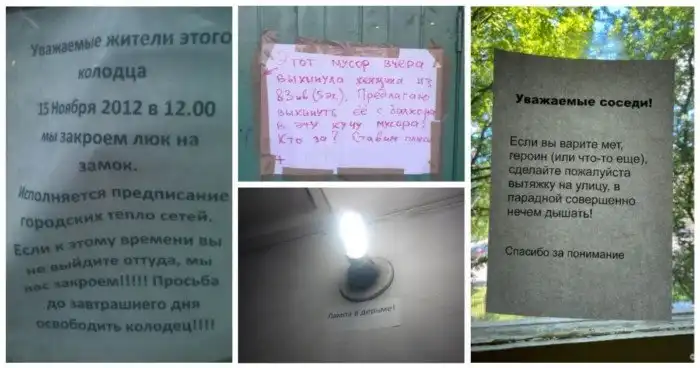 Уважаемые жители этого
колодца
15 Ноября 2012 в 12.00
мы закроем люк на
замок.
Исполняется предписание
городских тепло сетей.
Если к этому времени вы
не выйдите оттуда, мы
вас закроем!!!!! Просьба
до завтрашнего дня
освободить колодец!!!!
Этот мусор вчера
выкинула женщина из
83 кв (5 эт.). Предлагаю
выкинуть её с балкона
в эту кучу мусора!
Кто за? Ставим плюс
+
Лампа в дерьме!
Уважаемые соседи!
Если вы варите мет,
героин (или что-то еще),
сделайте пожалуйста
вытяжку на улицу, в
парадной совершенно
нечем дышать!
Спасибо за понимание